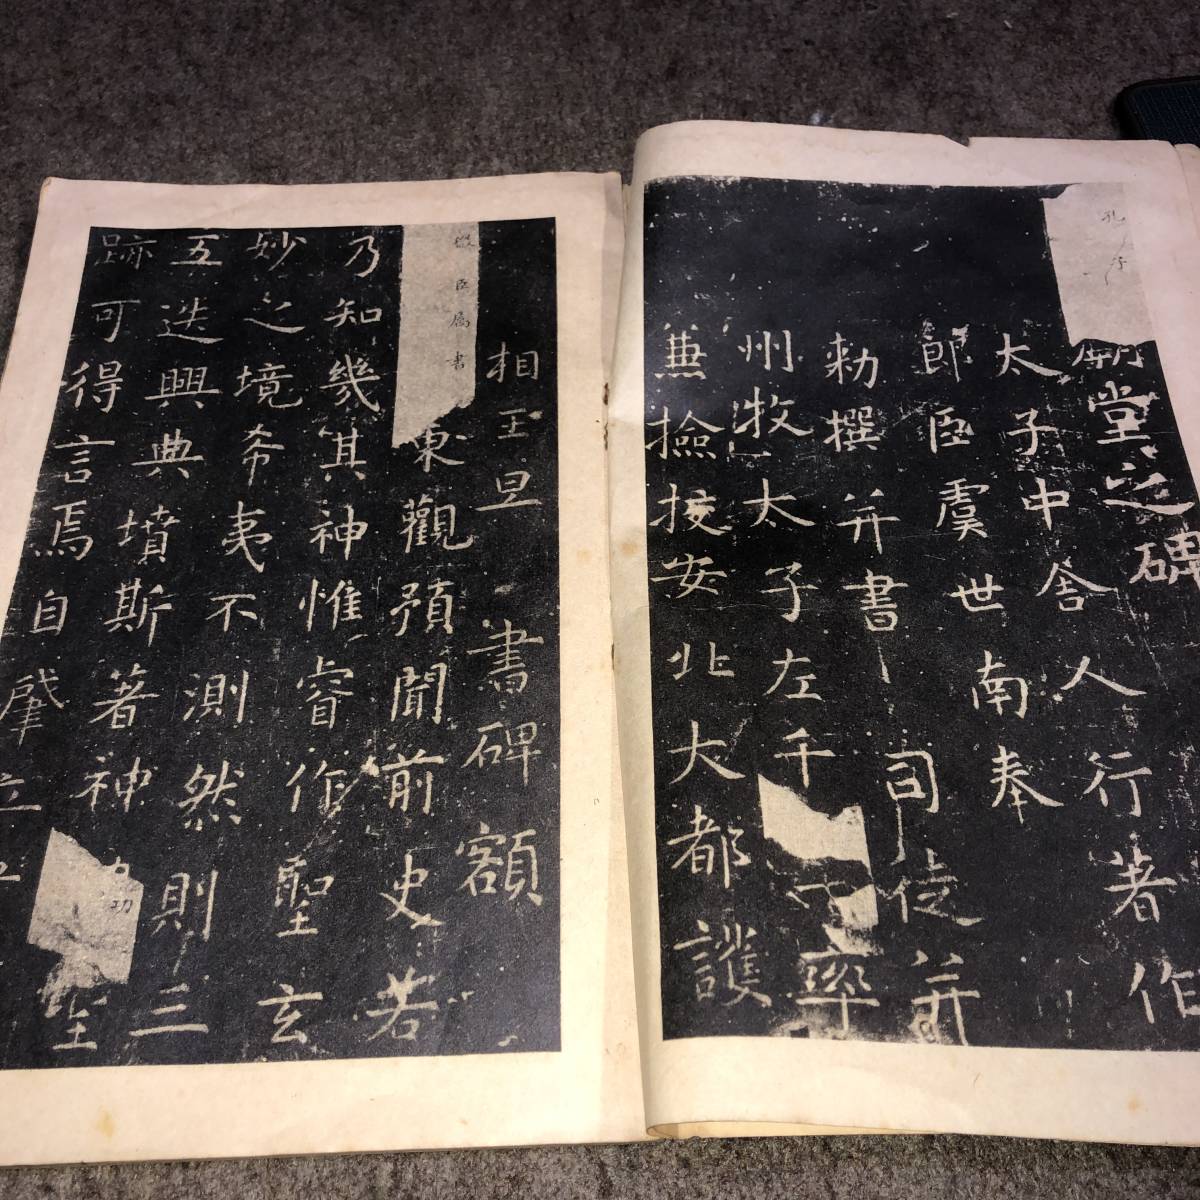 孔子
廟堂之碑
太子中舍人行著作
郎臣虞世南奉
勑撰并書司徒并
州牧太子左千牛率
兼撿挍安北大都護
相王旦書碑額
微臣屬書
東觀預聞前史若
乃知幾其神惟睿作聖玄
妙之境希夷不測然則三
五迭興典墳斯著神功聖
跡可得言焉自肇立